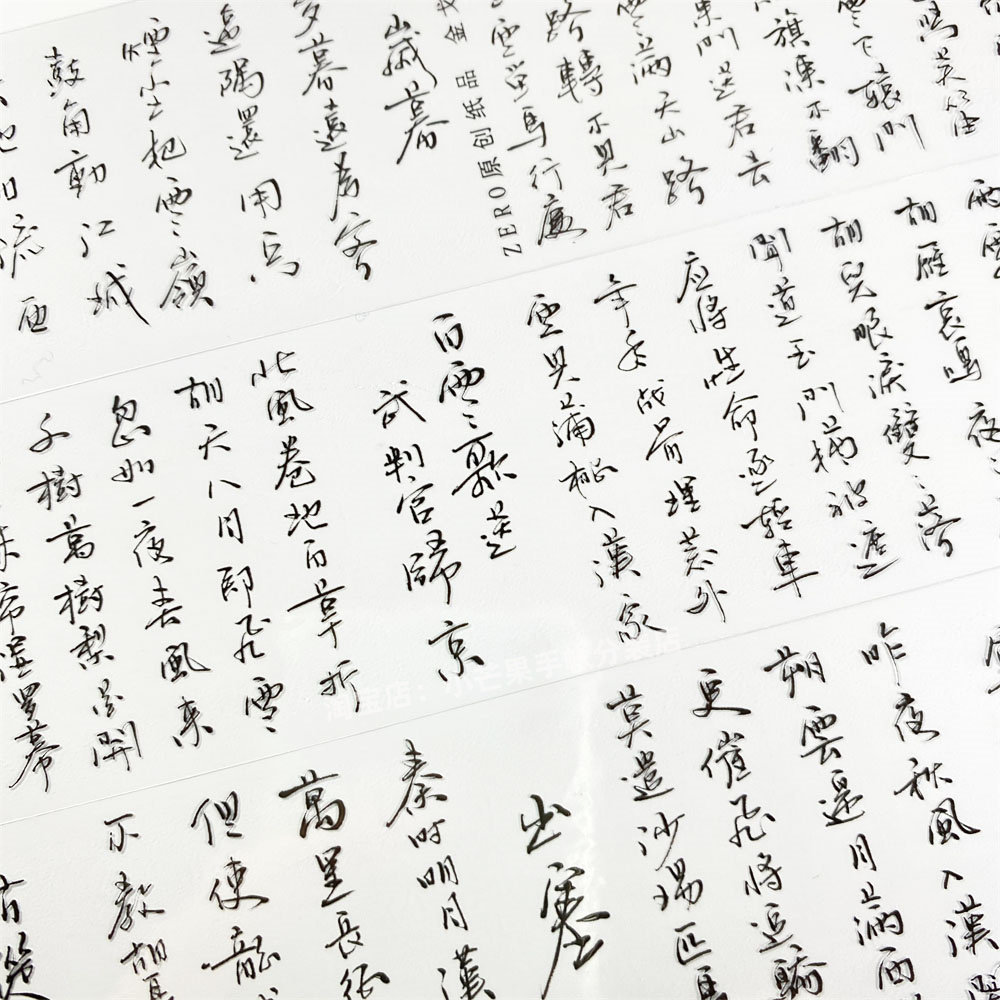 雪下轅門
旗凍不翻
東門送君去
雪滿天山路
路轉不見君
馬行處
ZERO原创纸品 金
歲暮
歲暮遠為客
邊隅還用兵
煙塵犯雪嶺
鼓角動江城
地日流
雨雪
胡雁哀鳴夜
胡兒眼淚雙雙落
聞道玉門猶被遮
应將性命逐輕車
年年战骨埋荒外
空見蒲桃入漢家
白雪歌送
武判官歸京
北風卷地百草折
胡天八月即飛雪
忽如一夜春風來
千樹萬樹梨花開
珠簾濕羅幕
昨夜秋風入漢關
朔雲邊月滿西
更催飛將追驕
莫遣沙場匹馬
出塞
秦时明月漢
萬里長征
但使龍城
不教胡馬